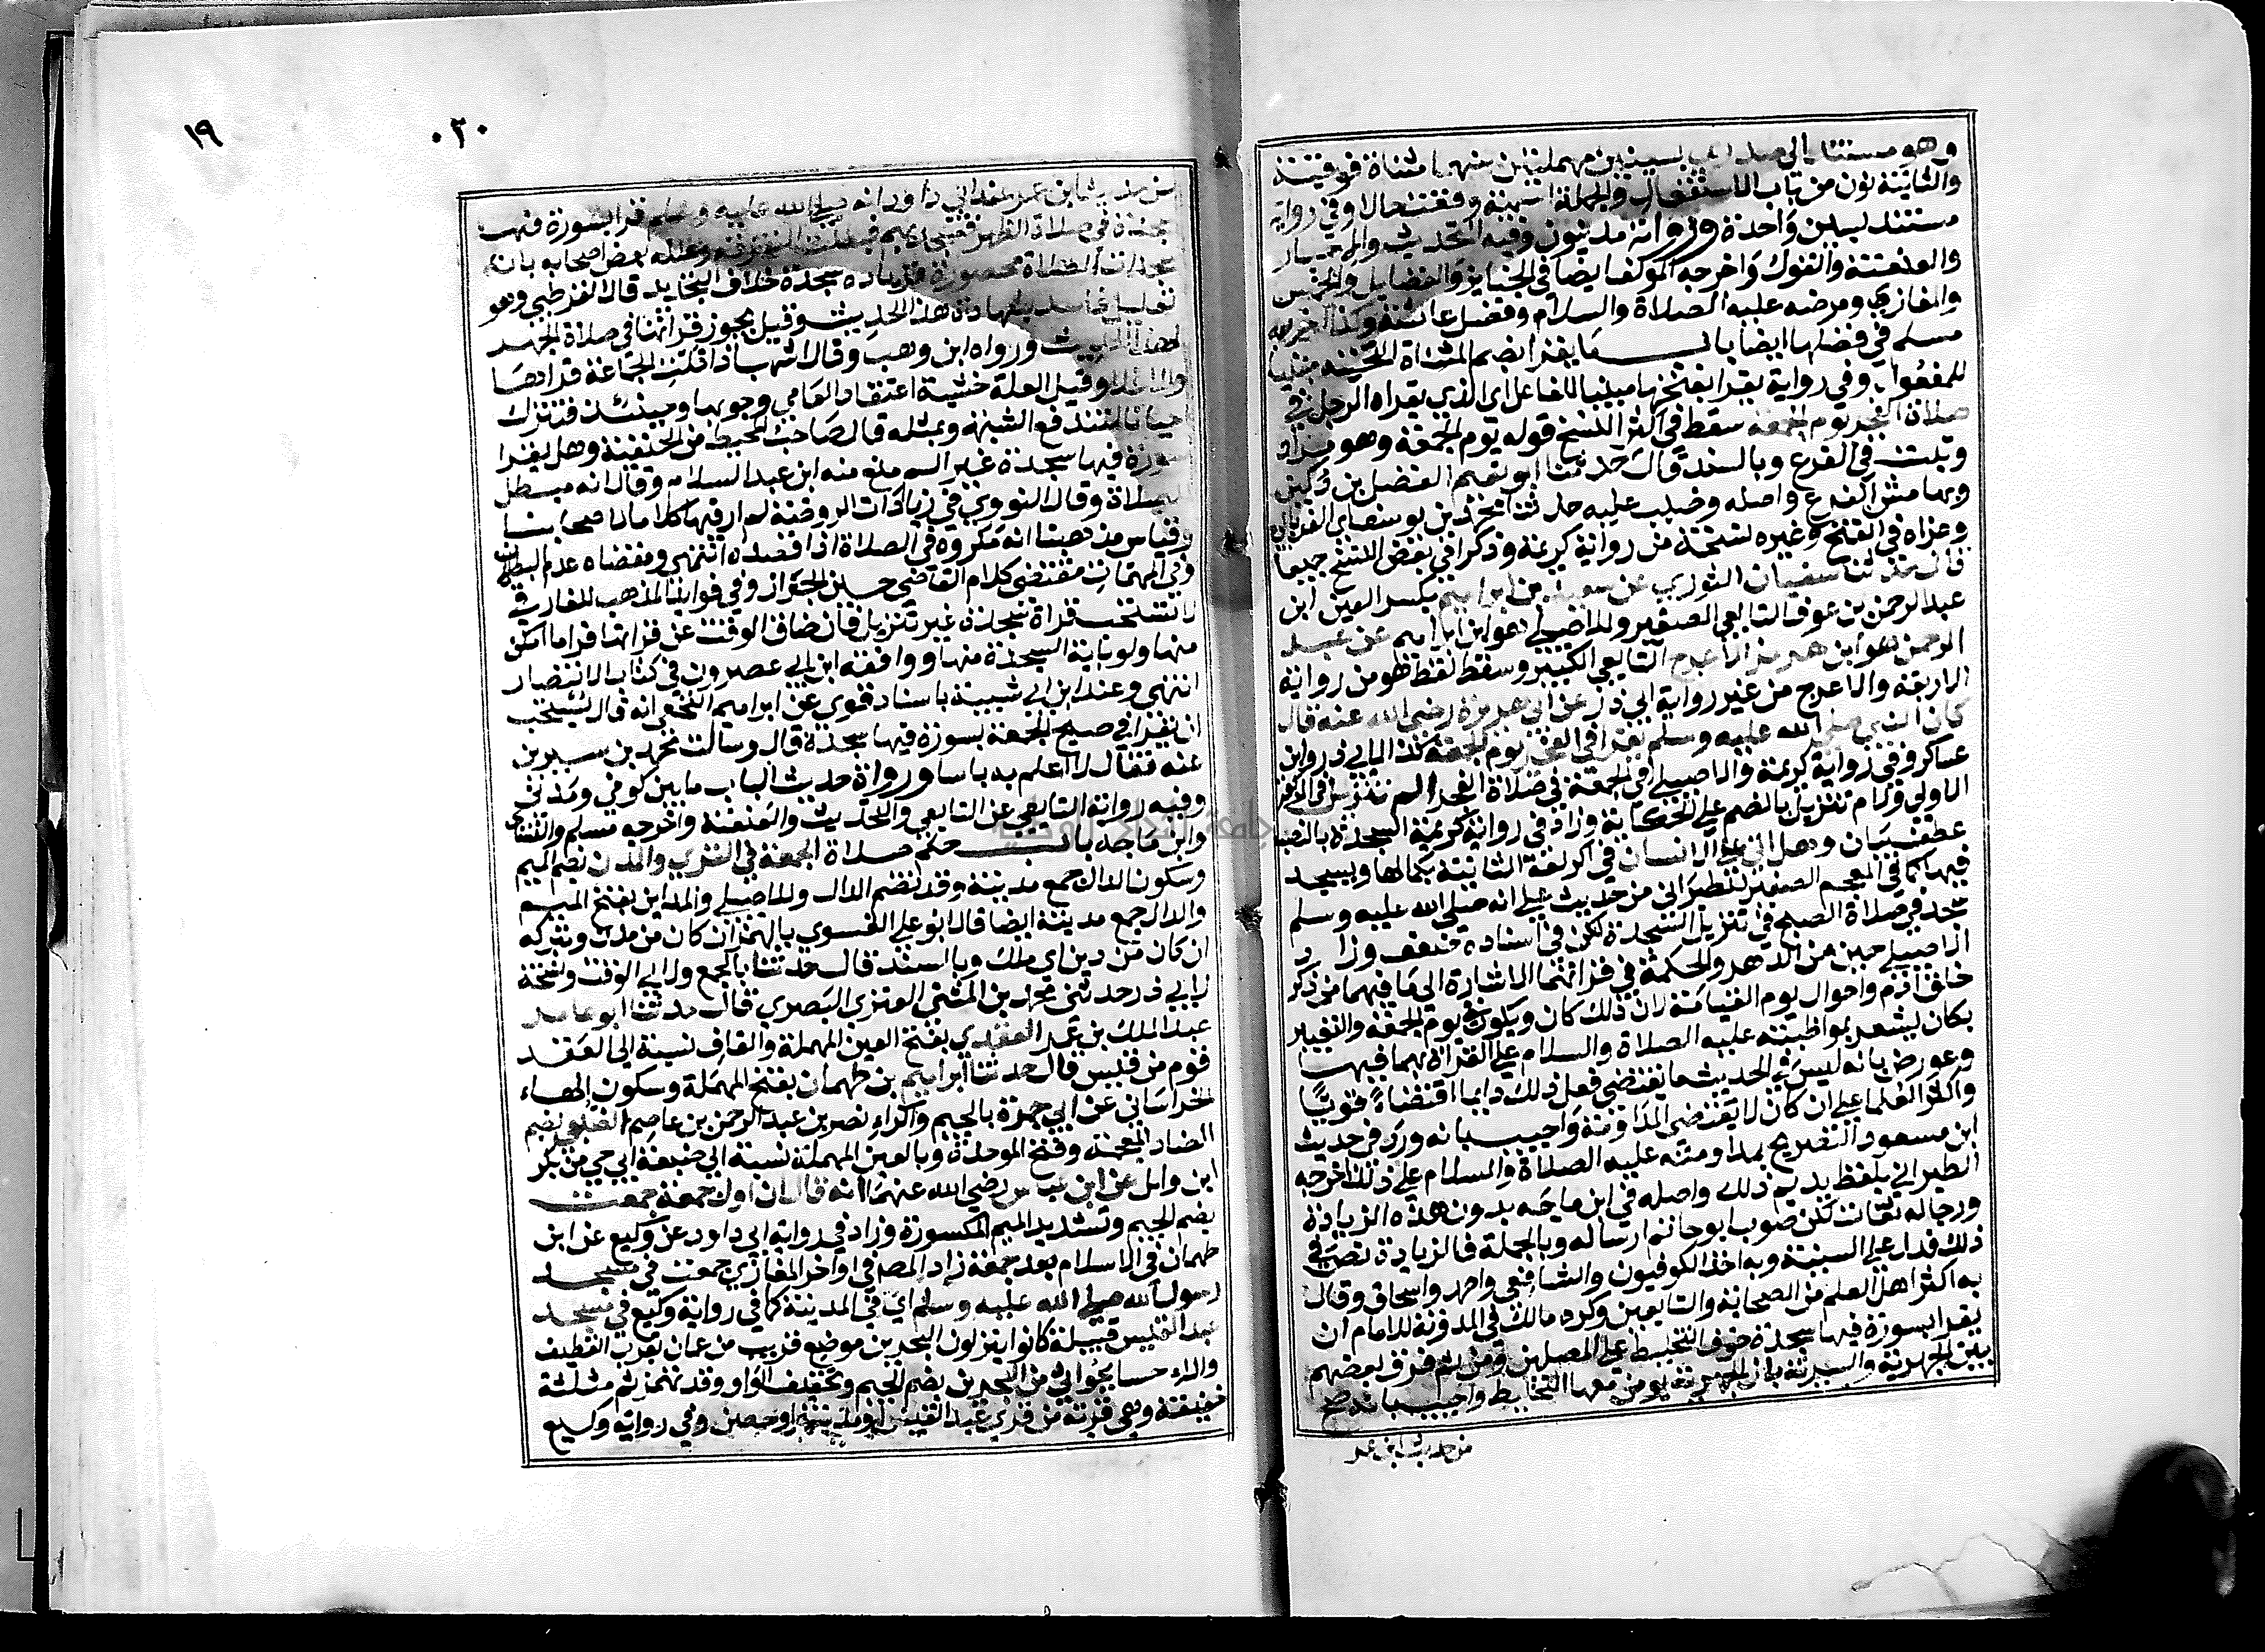 وهو مستند الى صدري بسينين مهملتين بينهما مثناة فوقية
والثانية نون من باب الاستفعال والجملة اسمية وقعت حالا وفي رواية
مستند بسين واحدة ورواته مدنيون وفيه التحديث والاخبار
والعنعنة والقول واخرجه المؤلف ايضا في الجنايز والفضايل والخمس
والمغازي ومرضه عليه الصلاة والسلام وفضل عائشة وكذا اخرجه
مسلم في فضلها ايضا باب ما يقرا بضم المثناة التحتية مبنيا
للمفعول وفي رواية يقرا بفتحها مبنيا للفاعل اي الذي يقراه الرجل في
صلاة الفجر يوم الجمعة سقط في اكثر النسخ قوله يوم الجمعة وهو مراد
وثبت في الفرع وبالسند قال حدثنا ابو نعيم الفضل بن دكين
وبهامش الفرع واصله وضبب عليه حدثنا محمد بن يوسف اي الفريابي
وعزاه في الفتح وغيره لنسخة من رواية كريمة وذكرا في بعض النسخ جميعا
قال حدثنا سفيان الثوري عن سعد بن ابراهيم بكسر العين ابن
عبد الرحمن بن عوف التابعي الصغير وللاصيلي هو ابن ابراهيم عن عبد
الرحمن هو ابن هرمز الاعرج التابعي الكبير وسقط لفظ هو من رواية
الاربعة والاعرج من غير رواية ابي ذر عن ابي هريرة رضي الله عنه قال
كان النبي صلى الله عليه وسلم يقرا في الفجر يوم الجمعة كذا لابي ذر وابن
عساكر وفي رواية كريمة والاصيلي في الجمعة في صلاة الفجر الم تنزيل في الركعة
الاولى ولام تنزيل بالضم على الحكاية وزاد في رواية كريمة السجدة بالنصب
عطف بيان وهل اتى على الانسان في الركعة الثانية بكمالها ويسجد
فيها كما في المعجم الصغير للطبراني من حديث علي انه صلى الله عليه وسلم
سجد في صلاة الصبح في تنزيل السجدة لكن في اسناده ضعف وزاد
الاصيلي حين من الدهر والحكمة في قراءتهما الاشارة الى ما فيهما من ذكر
خلق ادم واحوال يوم القيامة لان ذلك كان ويكون في يوم الجمعة والتعبير
بكان يشعر بمواظبته عليه الصلاة والسلام على القراة بهما فيها
وعورض بانه ليس في الحديث ما يقتضي فعل ذلك دايما اقتضاء قويا
واكثر العلما على ان كان لا يقتضي المداومة واجيب بانه ورد في حديث
ابن مسعود التصريح بمداومته عليه الصلاة والسلام على ذلك اخرجه
الطبراني بلفظ يديم ذلك واصله في ابن ماجه بدون هذه الزيادة
ورجاله ثقات لكن صوب ابو حاتم ارساله وبالجملة فالزيادة نص في
ذلك فدل على السنية وبه اخذ الكوفيون والشافعي واحمد واسحاق وقال
به اكثر اهل العلم من الصحابة والتابعين وكره مالك في المدونة للامام ان
يقرا بسورة فيها سجدة خوف التخليط على المصلين ومن ثم فرق بعضهم
بين الجهرية والسرية بان الجهرية يومن معها التخليط واجيب بانه صح
من حديث ابن عمر
٠٢٠
١٩
من حديث ابن عمر عند ابي داود انه صلى الله عليه وسلم قرا بسورة فيها
سجدة في صلاة الظهر فسجد بهم فبطلت التفرقة وعلله بعض اصحابه بان
سجدات الصلاة محصورة فزيادة سجدة خلاف التحديد قال القرطبي وهو
تعليل فاسد بشهادة هذا الحديث وقيل يجوز قراءتها في صلاة الجهر
لهذا الحديث ورواه ابن وهب وقال اشهب اذا قلت الجماعة قراها
والا فلا وقيل العلة خشية اعتقاد العامي وجوبها وحينئذ فتترك
احيانا لتندفع الشبهة وبمثله قال صاحب المحيط من الحنفية وهل يقرا
سورة فيها سجدة غير الم منع منه ابن عبد السلام وقال انه مبطل
للصلاة وقال النووي في زيادات الروضة لم ار فيها كلاما لاصحابنا
وقياس مذهبنا انه مكروه في الصلاة اذا قصده انتهى ومقتضاه عدم البطلان
وفي المهمات مقتضى كلام القاضي حسين الجواز وفي فوايد المهذب للفارقي
لا تستحب قراة سجدة غير تنزيل فان ضاق الوقت عن قراتها قرا ما امكن
منها ولو باية السجدة منها ووافقه ابن ابي عصرون في كتاب الانتصار
انتهى وعند ابن ابي شيبة باسناد قوي عن ابراهيم النخعي انه قال يستحب
ان يقرا في صبح الجمعة بسورة فيها سجدة قال وسالت محمد بن سيرين
عنه فقال لا اعلم به باسا ورواة حديث الباب ما بين كوفي ومدني
وفيه رواية التابعي عن التابعي والتحديث والعنعنة واخرجه مسلم والنسائي
وابن ماجه باب حكم صلاة الجمعة في القرى والمدن بضم الميم
وسكون الدال جمع مدينة وقد تضم الدال وللاصيلي والمداين بفتح الميم
والدال جمع مدينة ايضا قال ابو علي الفسوي بالهمز ان كان من مدن وبتركه
ان كان من دين اي ملك وبالسند قال حدثنا بالجمع ولابي الوقت ونسخة
لابي ذر حدثني محمد بن المثنى العنزي البصري قال حدثنا ابو عامر
عبد الملك بن عمر العقدي بفتح العين المهملة والقاف نسبة الى العقد
قوم من قيس قال حدثنا ابراهيم بن طهمان بفتح المهملة وسكون الهاء
الخراساني عن ابي جمرة بالجيم والراء نصر بن عبد الرحمن بن عاصم الضبعي بضم
الضاد المعجمة وفتح الموحدة وبالعين المهملة نسبة الى ضبيعة ابي حي من بكر
ابن وايل عن ابن عباس رضي الله عنهما انه قال ان اول جمعة جمعت
بضم الجيم وتشديد الميم المكسورة وزاد في رواية ابي داود عن وكيع عن ابن
طهمان في الاسلام بعد جمعة زاد المص في اواخر المغازي جمعت في مسجد
رسول الله صلى الله عليه وسلم اي في المدينة كما في رواية وكيع في مسجد
عبد القيس قبيلة كانوا ينزلون البحرين موضع قريب من عمان بقرب القطيف
والاحساء بجواثى من البحرين بضم الجيم وتخفيف الواو وقد تهمز ثم مثلثة
خفيفة وهي قرية من قرى عبد القيس او مدينة او حصن وفي رواية وكيع